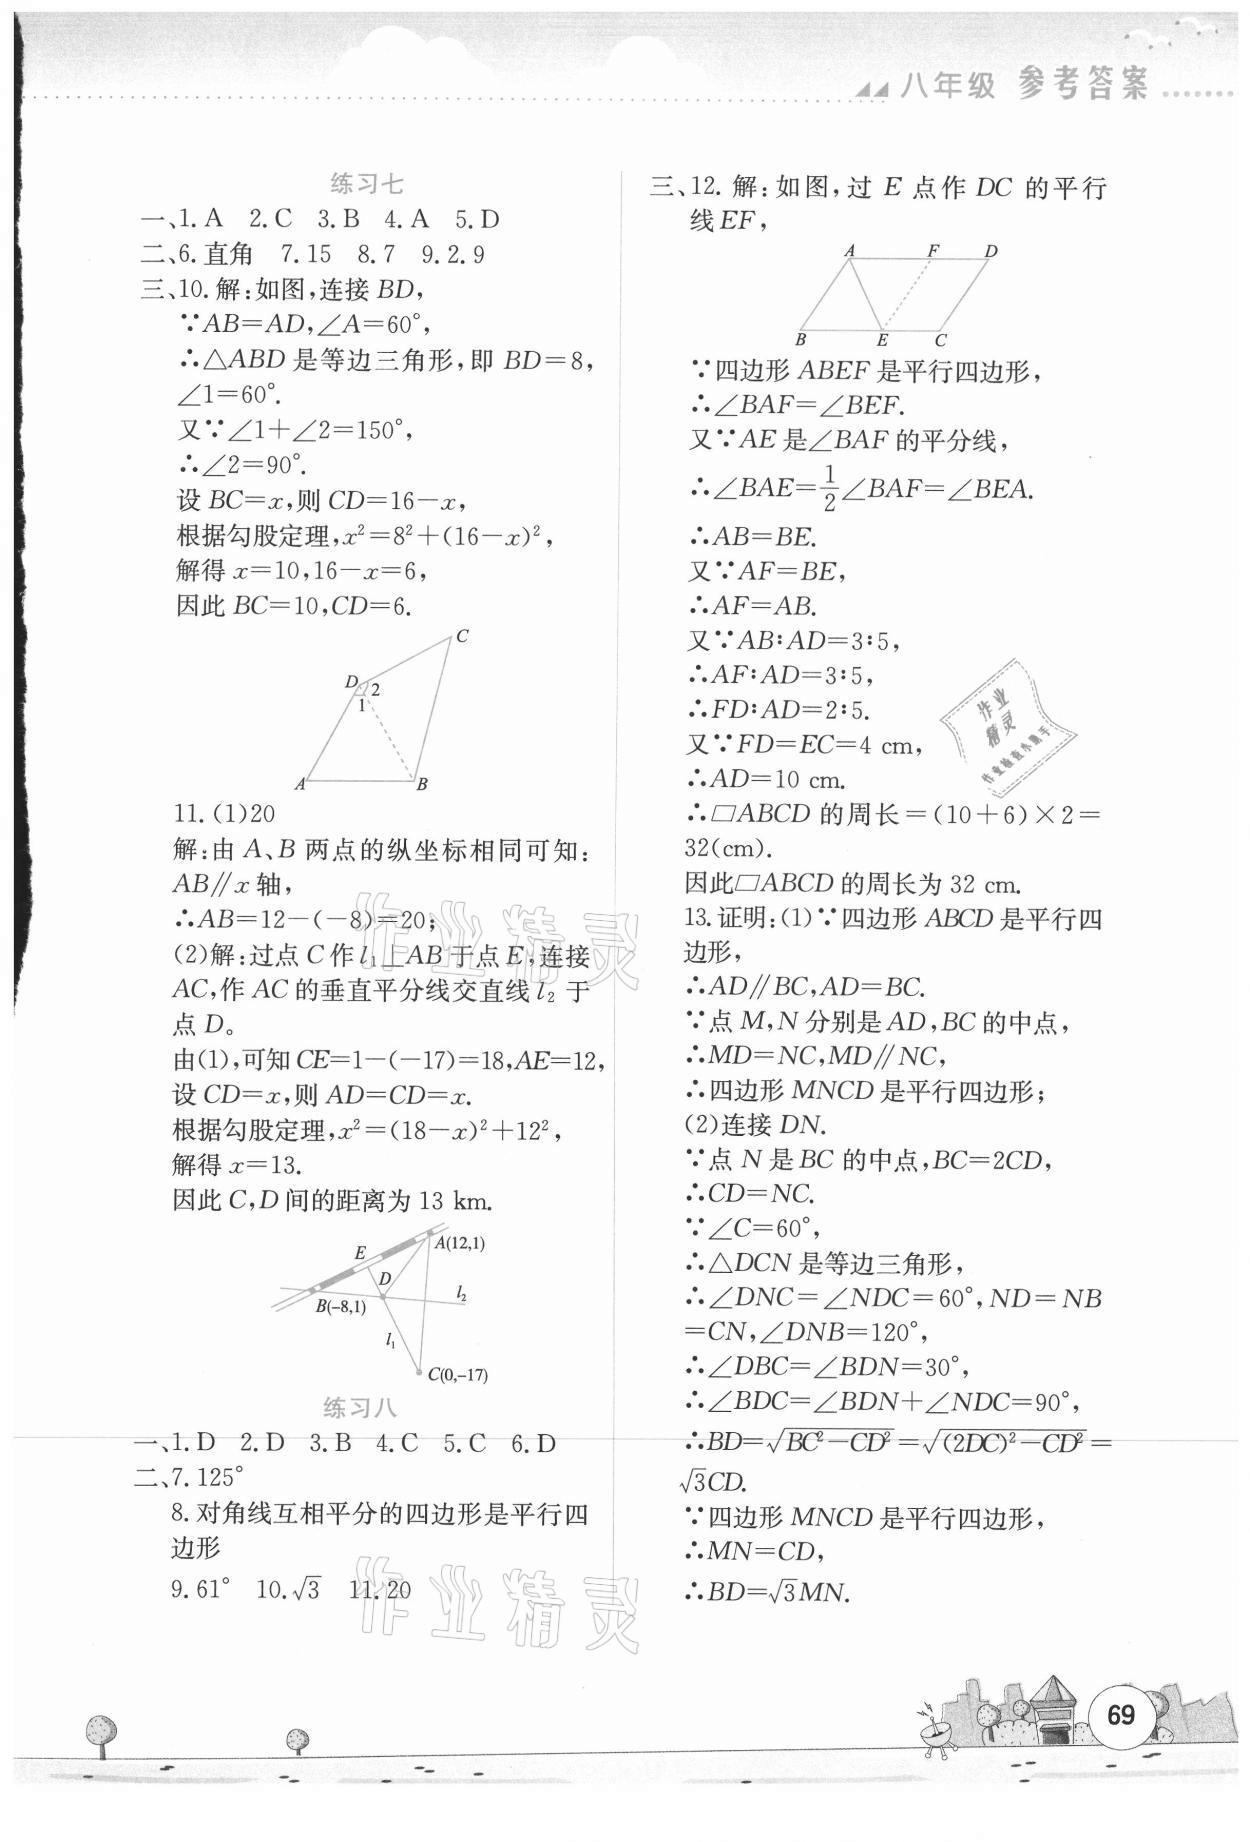 八年级 参考答案
练习七
一、1. A 2. C 3. B 4. A 5. D
二、6. 直角 7. 15 8. 7 9. 2. 9
三、10. 解:如图,连接 BD,
∵AB=AD,∠A=60°,
∴△ABD 是等边三角形,即 BD=8,
∠1=60°.
又∵∠1+∠2=150°,
∴∠2=90°.
设 BC=x,则 CD=16-x,
根据勾股定理,x²=8²+(16-x)²,
解得 x=10,16-x=6,
因此 BC=10,CD=6.
C
D 2
1
A B
11. (1)20
解:由 A、B 两点的纵坐标相同可知:
AB∥x 轴,
∴AB=12-(-8)=20;
(2)解:过点 C 作 l₁⊥AB 于点 E,连接
AC,作 AC 的垂直平分线交直线 l₂ 于
点 D。
由(1),可知 CE=1-(-17)=18,AE=12,
设 CD=x,则 AD=CD=x.
根据勾股定理,x²=(18-x)²+12²,
解得 x=13.
因此 C,D 间的距离为 13 km.
E A(12,1)
D
B(-8,1) l₂
l₁
C(0,-17)
练习八
一、1. D 2. D 3. B 4. C 5. C 6. D
二、7. 125°
8. 对角线互相平分的四边形是平行四
边形
9. 61° 10. √3 11. 20
三、12. 解:如图,过 E 点作 DC 的平行
线 EF,
A F D
B E C
∵四边形 ABEF 是平行四边形,
∴∠BAF=∠BEF.
又∵AE 是∠BAF 的平分线,
∴∠BAE=1/2∠BAF=∠BEA.
∴AB=BE.
又∵AF=BE,
∴AF=AB.
又∵AB∶AD=3∶5,
∴AF∶AD=3∶5,
∴FD∶AD=2∶5.
又∵FD=EC=4 cm,
∴AD=10 cm.
∴▱ABCD 的周长=(10+6)×2=
32(cm).
因此▱ABCD 的周长为 32 cm.
13. 证明:(1)∵四边形 ABCD 是平行四
边形,
∴AD∥BC,AD=BC.
∵点 M,N 分别是 AD,BC 的中点,
∴MD=NC,MD∥NC,
∴四边形 MNCD 是平行四边形;
(2)连接 DN.
∵点 N 是 BC 的中点,BC=2CD,
∴CD=NC.
∵∠C=60°,
∴△DCN 是等边三角形,
∴∠DNC=∠NDC=60°,ND=NB
=CN,∠DNB=120°,
∴∠DBC=∠BDN=30°,
∴∠BDC=∠BDN+∠NDC=90°,
∴BD=√(BC²-CD²)=√((2DC)²-CD²)=
√3CD.
∵四边形 MNCD 是平行四边形,
∴MN=CD,
∴BD=√3MN.
作业
精灵
作业精灵
作业精灵
69